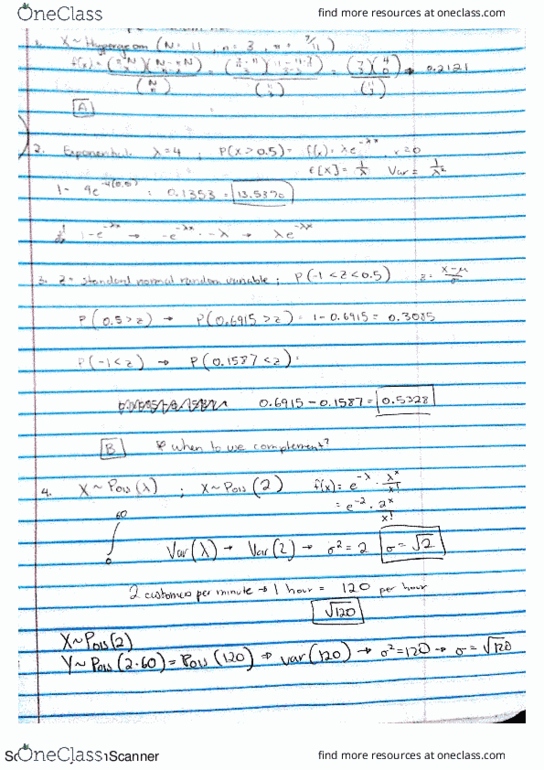 OneClass find more resources at oneclass.com
1. X ~ Hypergeom (N = 11, n = 3, π = 7/11)
f(x) = = = (7 3)(4 0) → 0.2121
(N n) (11 3) (11 3)
A
2. Exponential λ = 4 ; P(X > 0.5) = f(x) = λe^-λx, x ≥ 0
E[X] = 1/λ Var = 1/λ²
1 - 4e^-4(0.5) = 0.1353 = 13.53%
1 - e^-λx → -e^-λx · -λ → λe^-λx
3. Z = Standard normal random variable ; P(-1 < Z < 0.5) z = x-μ/σ
P(0.5 > z) → P(0.6915 > z) = 1 - 0.6915 = 0.3085
P(-1 < z) → P(0.1587 < z) =
0.6915 - 0.1587 = 0.5328
B * when to use complement?
4. X ~ Pois(λ) ; X ~ Pois(2) f(x) = e^-λ · λ^x/x!
= e^-2 · 2^x/x!
∞
0
Var(λ) → Var(2) → σ² = 2 σ = √2
2 customers per minute → 1 hour = 120 per hour
√120
X ~ Pois(2)
Y ~ Pois(2·60) = Pois(120) → var(120) → σ² = 120 → σ = √120
OneClass Scanner find more resources at oneclass.com